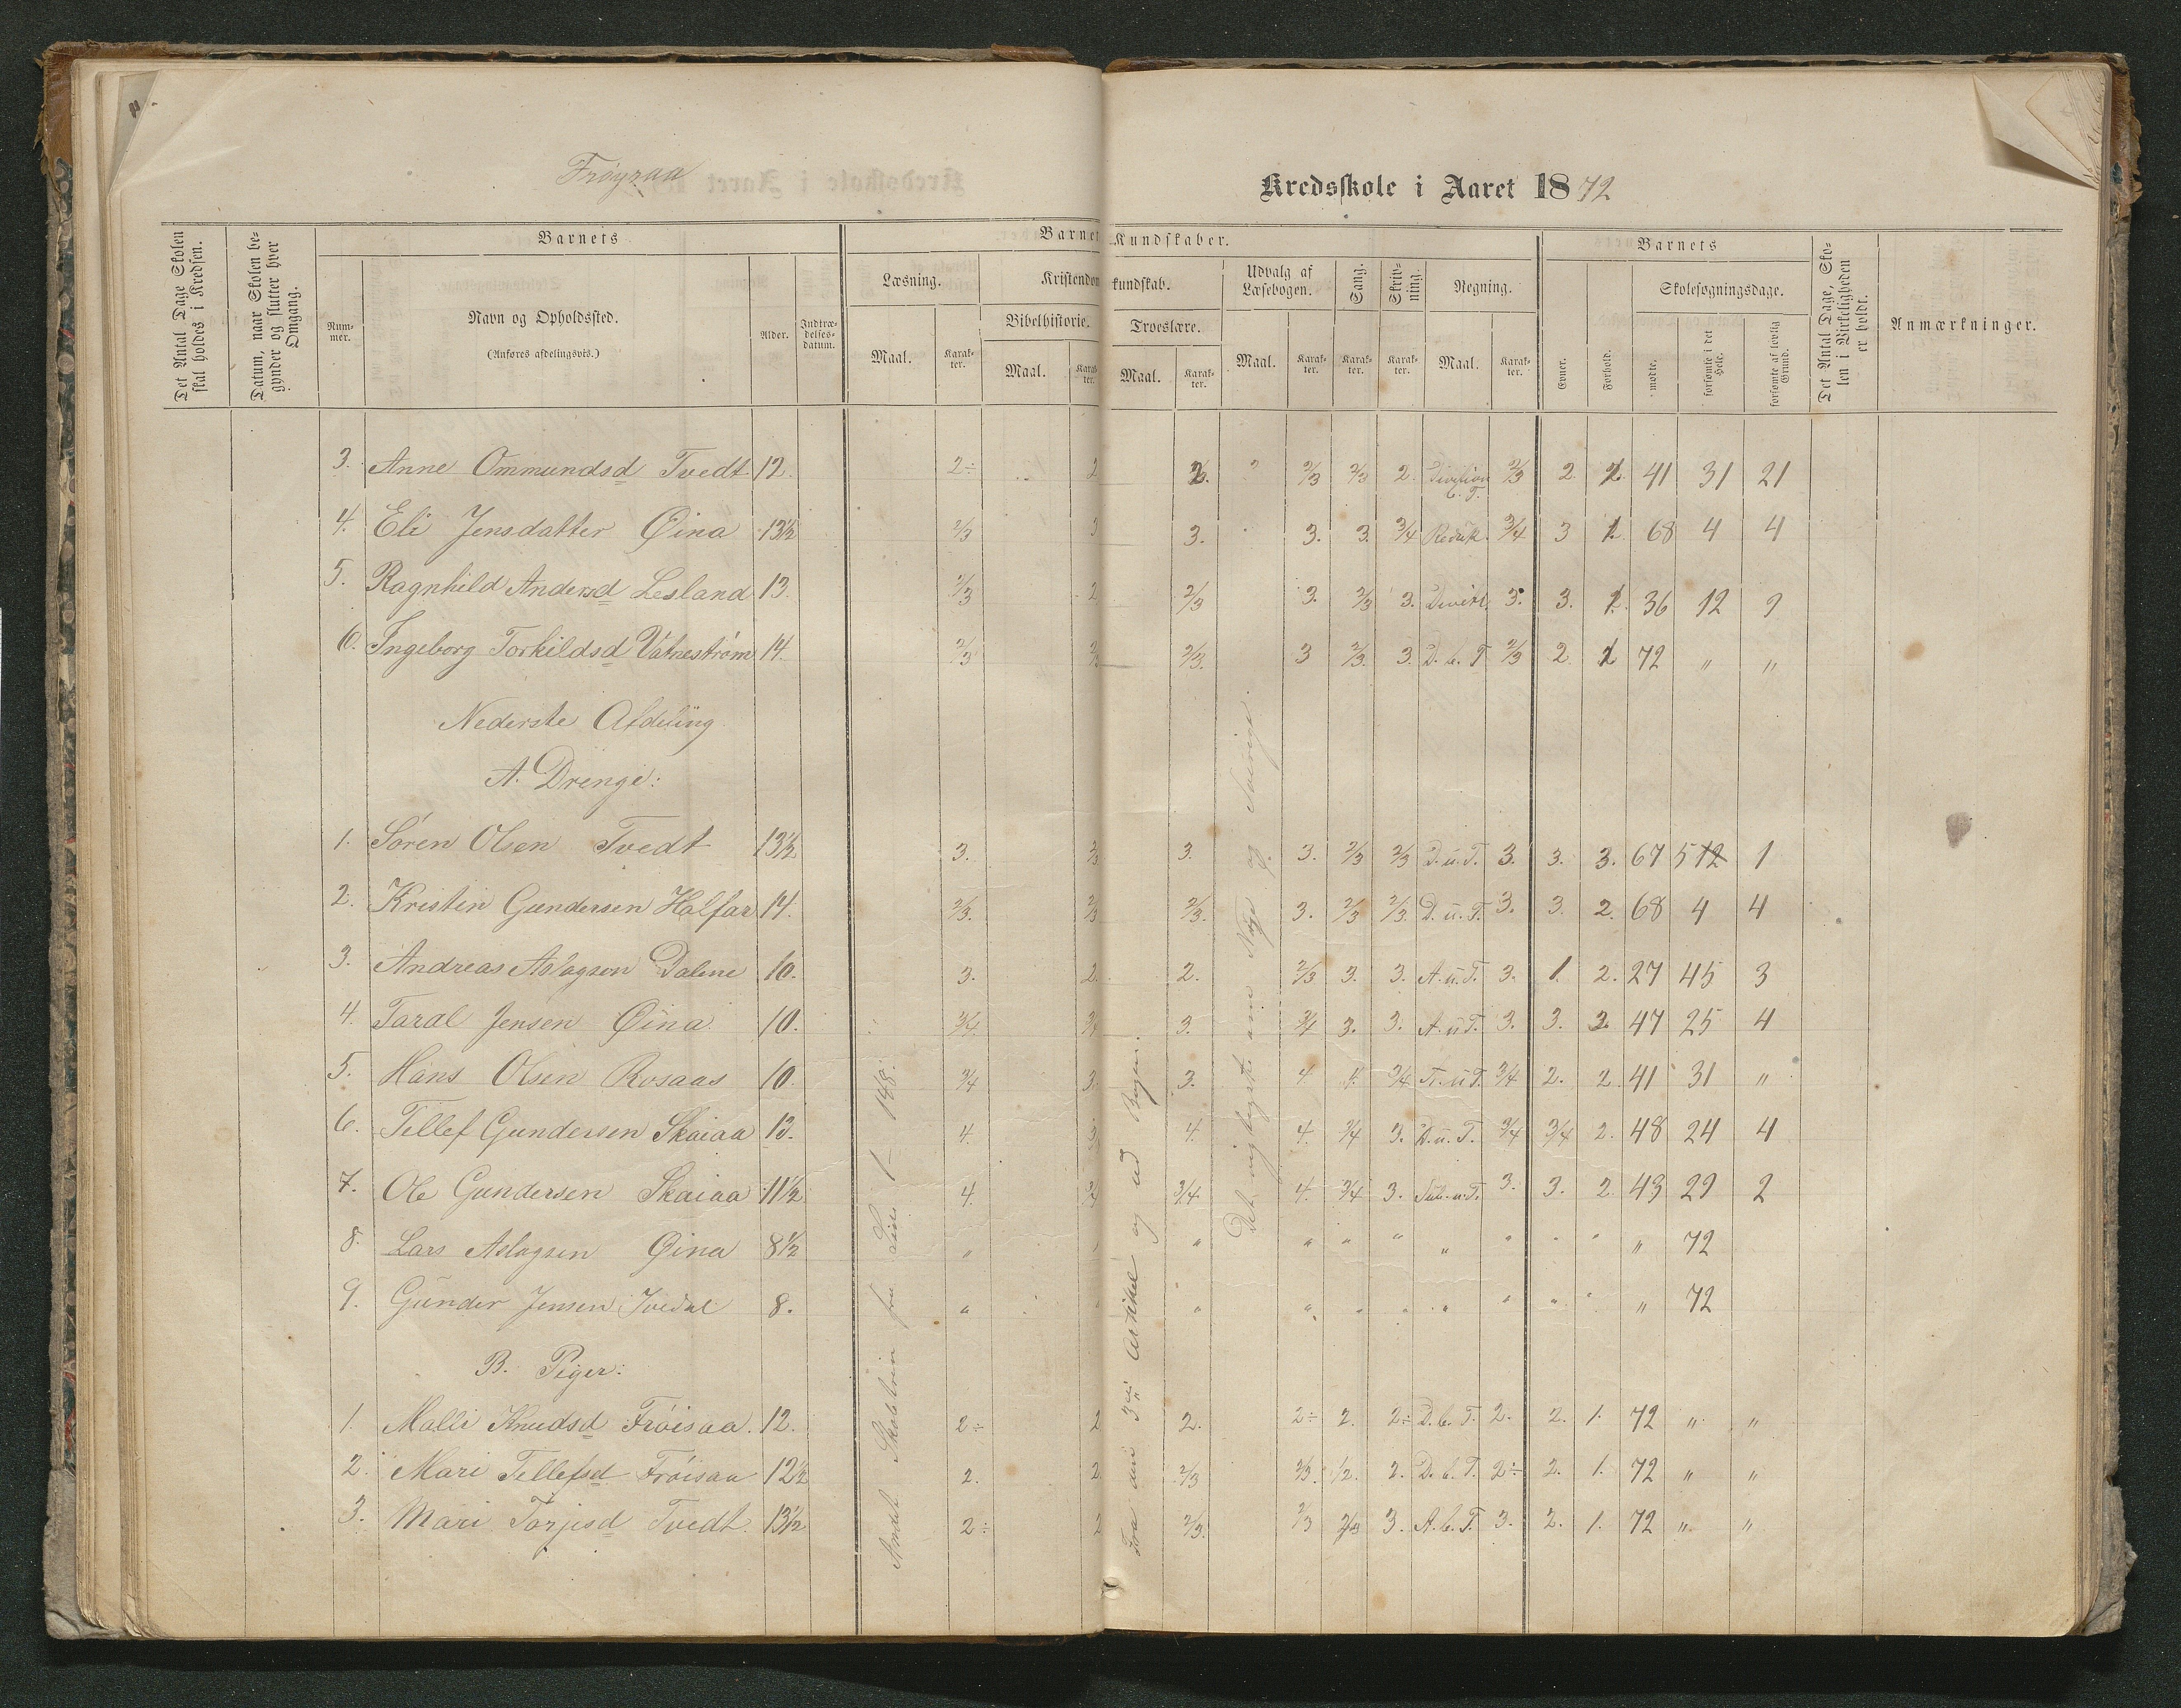 Frøysaa Kredsskole i Aaret 1872
Det Antal Dage Skolen skal holdes i Kredsen.
Datum, naar Skolen begynder og slutter hver Omgang.
Barnets
Nummer.
Navn og Opholdssted.
(Anføres afdelingsvis.)
Alder.
Indtrædelsesdatum.
Barnets Kundskaber.
Læsning.
Maal.
Karakter.
Kristendomskundskab.
Bibelhistorie.
Maal.
Karakter.
Troeslære.
Maal.
Karakter.
Udvalg af Læsebogen.
Maal.
Karakter.
Sang.
Karakter.
Skrivning.
Karakter.
Regning.
Maal.
Karakter.
Barnets
Evner.
Forhold.
Skolesøgningsdage.
mødte.
forsømte i det Hele.
forsømte af lovlig Grund.
Det Antal Dage, Skolen i Virkeligheden er holdt.
Anmærkninger.
3. Anne Ommundsd Tvedt 12. 2÷ 2 2. " 2/3 2/3 2. Division b. T. 2/3 2. 1. 41 31 21
4. Eli Jensdatter Øina 13½ 2/3 3 3. 3. 3. 3/4 Reduk. 3/4 3 1. 68 4 4
5. Ragnhild Andersd Lesland 13. 2/3 2 2/3 3. 2/3 3. Divis. 3. 3. 1. 36 12 9
6. Ingeborg Torkildsd Vatnestrøm 14. 2/3 2/3 2/3. 3 2/3. 3. D. b. T 2/3 2. 1 72 " "
Nederste Afdeling
A. Drenge:
1. Søren Olsen Tvedt 13½ 3. 2/3 3. 3. 2/3 2/3 D. u. T. 3. 3. 3. 67 5 12 1
2. Kristen Gundersen Halfar 14. 2/3. 2/3 2/3. 3. 2/3 2/3 D. u. T. 3. 3. 2. 68 4 4
3. Andreas Aslagsen Dalene 10. 3. 2. 2. 2/3 3. 3. A. u. T. 3. 1. 2. 27 45 3
4. Taral Jensen Øina 10. 3/4. 3/4 3. 3/4 3. 3. A. u T. 3. 3. 2. 47 25 4
5. Hans Olsen Rosaas 10. 3/4 3. 3. 4. 4. 3/4 u T. 3/4 2. 2. 41 31 "
6. Tellef Gundersen Skaiaa 13. 4. 3/4 4. 4. 3/4 3. D. u. T. 3/4 3/4 2. 48 24 4
7. Ole Gundersen Skaiaa 11½ 4. 3/4 3/4 4. 3/4 3. Sub. u. T. 3. 3. 2. 43 29 2
8. Lars Aslagsen Øina 8½ " " " " " " " " " " " 72
9. Gunder Jensen Ivedal 8. " " " " " " " " " " " 72
B. Piger:
1. Malli Knudsd Frøisaa. 12. 2÷ 2 2. 2÷ 2. 2÷ D. b. T. 2. 2. 1. 72 " "
2. Mari Tellefsd Frøisaa 12½ 2. 2 2/3 2/3. 2. 2. D. b. T. 2÷ 2. 1. 72 " "
3. Mari Torjusd Tvedt. 13½ 2÷ 2 2/3. 2/3 2/3 3. A. b. T. 3. 2. 1. 72 " "
fra Side 1 – 148.
Fra den 3die Artikel og ud Bogen.
Det vigtigste om Norge og Sverige.